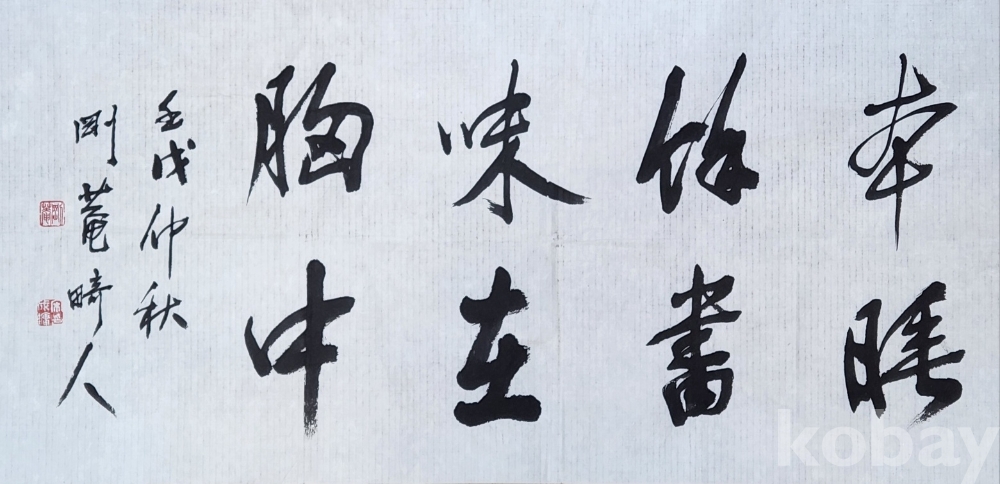 本睡
餘書
味在
胸中
壬戌仲秋
剛菴畸人
kobay